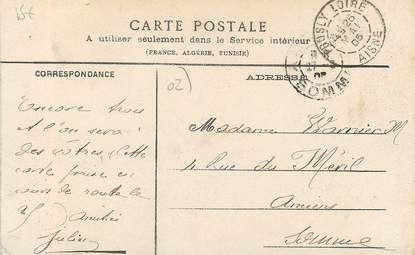 15f
CARTE POSTALE
A utiliser seulement dans le Service intérieur
(FRANCE, ALGÉRIE, TUNISIE)
CORRESPONDANCE
ADRESSE
LOIRE
AISNE
SOMME
02
Encore trois
et l'on sera
des vôtres. Cette
carte prise en
cours de route le
25. Amitiés
Julien
Madame Warnier M
4 Rue du Méril
Amiens
Somme